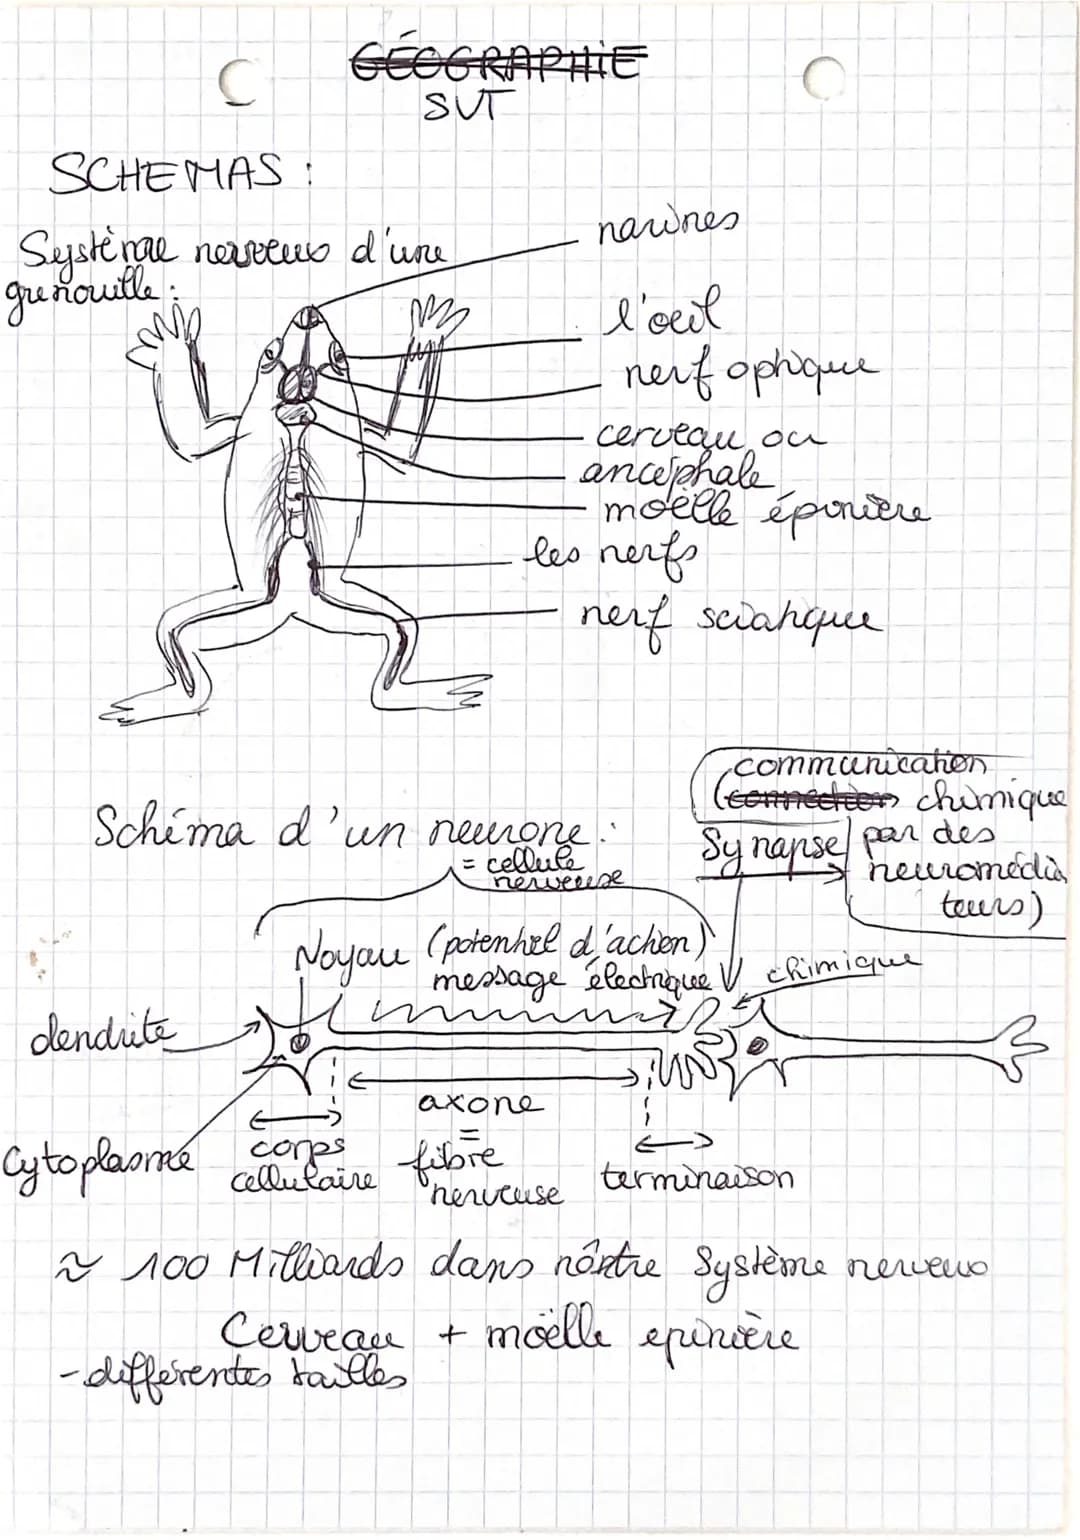 GÉOGRAPHIE
SVT
SCHEMAS :
Système nerveux d'une
grenouille :
narines
l'oeil
nerf optique
cerveau ou
ancéphale
moëlle épinière
les nerfs
nerf sciatique
communication
(connection chimique
par des
neuromédia
teurs)
Synapse
Schéma d'un neurone :
= cellule
nerveuse
Noyau (potentiel d'action)
message électrique
chimique
dendrite
axone
=
fibre
nerveuse
Cytoplasme
corps
cellulaire
terminaison
≈ 100 Milliards dans nôtre Système nerveux
Cerveau + moëlle epinière
- différentes tailles